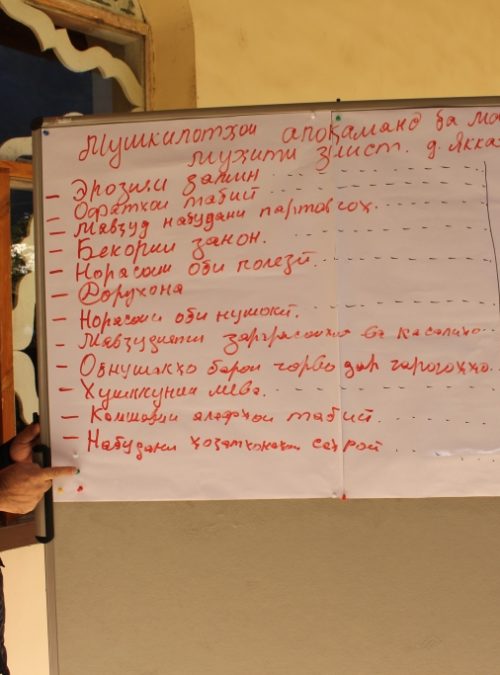 Мушкилотҳои алоқаманд ба
муҳити зист. д. Якка
- Эрозияи замин
- Офатҳои табиӣ
- Мавҷуд набудани партовгоҳ.
- Бекории занон.
- Норасоии оби полезӣ.
- Дорухона
- Норасоии оби нушокӣ.
- Мавҷудияти зараррасонҳо ва касалиҳо
- Обнушакҳо барои чорво дар чарогоҳҳо.
- Хушккунии мева.
- Камшавии алафҳои табиӣ.
- Набудани саҳроӣ